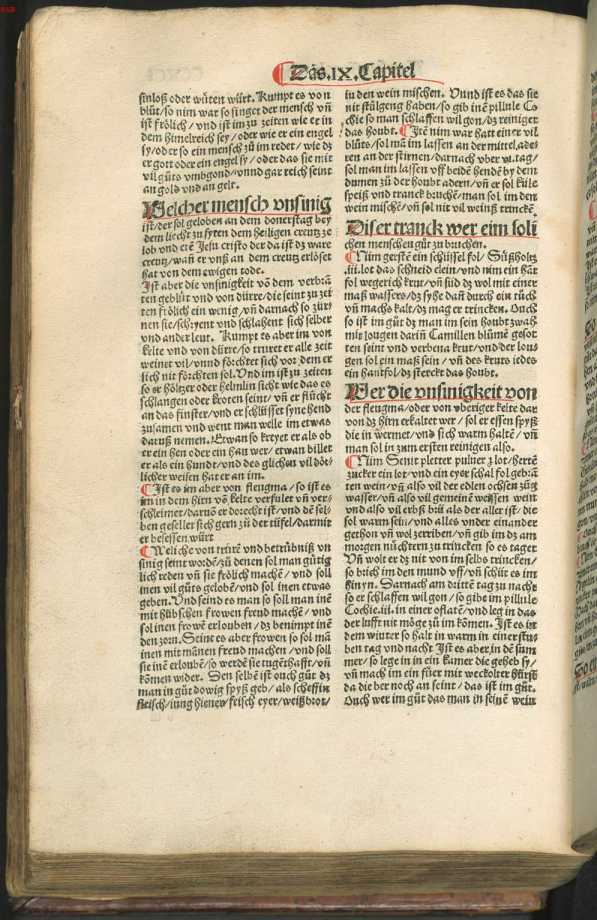 Das .IX. Capitel
sinloß oder wüten würt. Kumpt es von
blüt/so nim war so singet der mensch vñ
ist frölich/vnd ist im zu zeiten wie er in
dem himelreich sey/oder wie er ein engel
sy/oder so ein mensch zü im redet/wie dz
er gott oder ein engel sy/oder das sie mit
vil güts vmbgond/vnnd gar reich seint
an gold vnd an gelt.
Welcher mensch vnsinig
ist/der sol geloben an dem donerstag bey
dem liecht zu syten dem heiligen creutz ze
lob vnd ere Jesu cristo der da ist dz ware
creutz/wañ er vnß an dem creutz erlöset
hat von dem ewigen tode.
Ist aber die vnsinigkeit võ dem verbrã
ten geblüt vnd von dürre/die seint zu zei
ten frölich ein wenig/vñ darnach so zür
nen sie/schryent vnd schlahent sich selber
vnd ander leut. Kumpt es aber im von
kelte vnd von dürre/so truret er alle zeit
weinet vil/vnnd förchtet sich vor dem er
lich nit förchten sol. Vnd im ist zu zeiten
so er hölzer oder helmlin sicht wie das es
schlangen oder kroten seint/vñ er flücht
an das finster/vnd er schlüsset syne hend
zusamen vnd went man welle im etwas
daruß nemen. Etwan so kreyet er als ob
er ein hen oder ein han wer/etwan billet
er als ein hundt/vnd des glichen vil döt-
licher weisen hat er an im.
Ist es im aber von fleugma/so ist es
im in dem hirn võ kelte verfulet vñ ver-
schleimet/darüm er dorecht ist/vnd dē sel-
ben gesellet sich gern zü der tüfel/darmit
er besessen würt
Weliche von trürē vnd betrübniß vn
sinig seint wordē/zü denen sol man gütig
lich reden vñ sie frölich machē/vnd soll
inen vil güts gelobē/vnd sol inen etwas
geben. Vnd seind es man so soll man inē
mit hübschen frowen freud machē/vnd
sol inen frowē erlouben/dz benimpt inē
den zorn. Seint es aber frowen so sol mā
inen mit mānen freud machen/vnd soll
sie inē erloubē/so werdē sie tugēthafft/vñ
kömen wider. Den selbē ist ouch güt dz
man in güt dowig spyß geb/als scheffin
fleisch/iung hiener/frisch eyer/weißbrot/
in den wein mischen. Vnnd ist es das sie
nit stülgeng haben/so gib inē pillule Co
chie so man schlaffen wil gon/dz reiniget
das houbt. Itē nim war hatt einer vil
blüts/sol mā im lassen an der mittel ade
ren an der stirnen/darnach vber vi. tag/
sol man im lassen vff beidē hendē by dem
dumen zü der houbt adern/vñ er sol küle
speiß vnd tranck buchē/man sol im den
wein mischē/vñ sol nit vil weinß trinckē
Diser tranck wer eim soli
chen menschen güt zu buchen.
Nim gerstē ein schüssel fol/Süßholtz
.iii. lot das schneid clein/vnd nim ein hār
fol wegerich krut/vñ süd dz wol mit einer
maß wassers/dz syhe dañ durch ein tüch
vñ machs kalt/dz mag er trincken. Ouch
so ist im güt dz man im sein houbt zwah
mit lougen darin Camillen blümē gesot
ten seint vnd verbena krut/vnd der lou-
gen sol ein maß sein/vñ des kruts iedes
ein hantfol/dz sterckt das houbt.
Wer die vnsinigkeit von
der fleugma/oder von vberiger kelte dar
von dz hirn erkaltet wer/sol er essen spyß
die in wermet/vnd sich warm haltē/vñ
man sol in zum ersten reinigen also.
Nim Senit pletter puluer .z lot/hertē
zucker ein lot/vnd ein eyer schal fol gebrā
ten wein/vñ also vil der edlen ochsen züg
wasser/vñ also vil gemeinē weissen wein
vnd also vil erbß brü als der aller ist/die
sol warm sein/vnd alles vnder einander
gethon vñ wol zerriben/vñ gib im dz am
morgen nüchtern zü trincken so es taget
Vñ wolt er dz nit von im selbs trincken/
so brich im den mund vff/vñ schüt es im
hinyn. Darnach am drittē tag zu nacht
so er schlaffen wil gon/so gibe im pillule
Cochie .iii. in einer oflatē/vnd leg in das
der lufft nit möge zü im kömen. Ist es im
dem winter so halt in warm in einer stu-
ben tag vnd nacht. Ist es aber in dē sum
mer/so lege in in ein kamer die geheb sy/
vñ mach im ein füer mit weckolter hürst
da die ber noch an seint/das ist im güt.
Ouch wer im güt das man in seinē wein